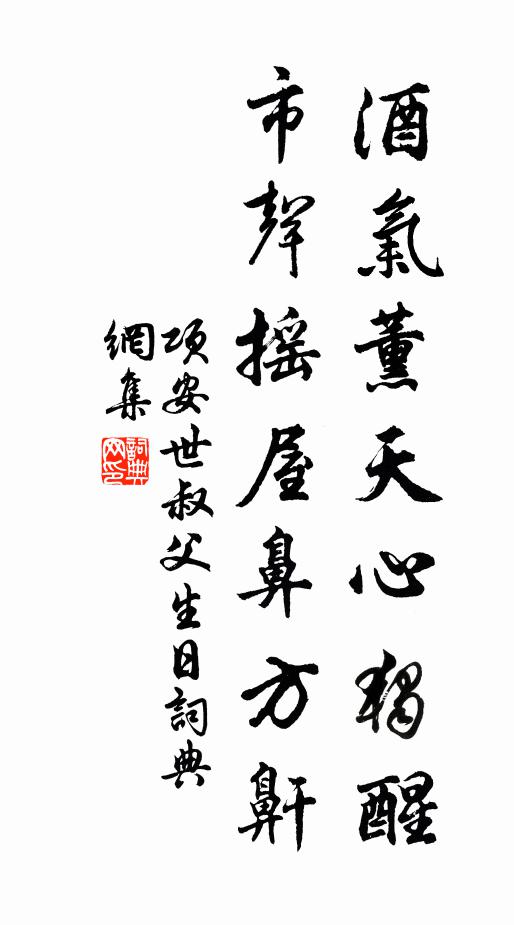 酒氣薰天心獨醒
市聲摇屋鼻方鼾
項安世叔父生日詞典
網集
詞典
网印